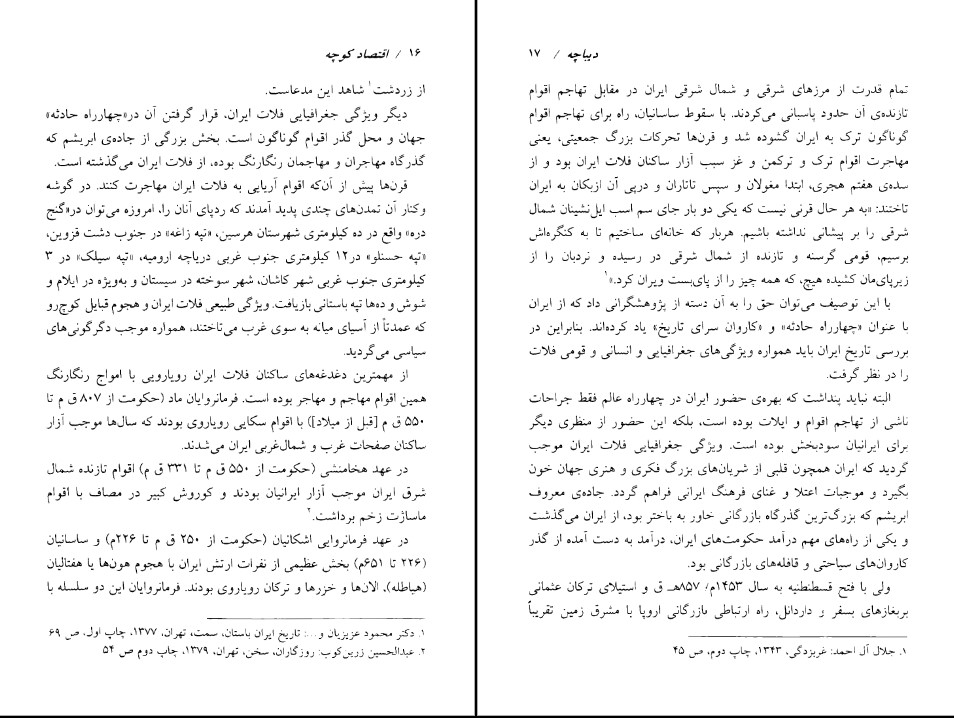 ۱۶ / اقتصاد کوچه
از زردشت۱ شاهد این مدعاست.
دیگر ویژگی جغرافیایی فلات ایران، قرار گرفتن آن در«چهارراه حادثه»
جهان و محل گذر اقوام گوناگون است. بخش بزرگی از جاده‌ی ابریشم که
گذرگاه مهاجران و مهاجمان رنگارنگ بوده، از فلات ایران می‌گذشته است.
قرن‌ها پیش از آن‌که اقوام آریایی به فلات ایران مهاجرت کنند. در گوشه
وکنار آن تمدن‌های چندی پدید آمدند که ردپای آنان را، امروزه می‌توان در«گنج
دره» واقع در ده کیلومتری شهرستان هرسین، «تپه زاغه» در جنوب دشت قزوین،
«تپه حسنلو» در۱۲ کیلومتری جنوب غربی دریاچه ارومیه، «تپه سیلک» در ۳
کیلومتری جنوب غربی شهر کاشان، شهر سوخته در سیستان و به‌ویژه در ایلام و
شوش و ده‌ها تپه باستانی بازیافت. ویژگی طبیعی فلات ایران و هجوم قبایل کوچ‌رو
که عمدتاً از آسیای میانه به سوی غرب می‌تاختند، همواره موجب دگرگونی‌های
سیاسی می‌گردید.
از مهمترین دغدغه‌های ساکنان فلات ایران رویارویی با امواج رنگارنگ
همین اقوام مهاجم و مهاجر بوده است. فرمانروایان ماد (حکومت از ۸۰۷ ق م تا
۵۵۰ ق م [قبل از میلاد]) با اقوام سکایی رویاروی بودند که سال‌ها موجب آزار
ساکنان صفحات غرب و شمال‌غربی ایران می‌شدند.
در عهد هخامنشی (حکومت از ۵۵۰ ق م تا ۳۳۱ ق م) اقوام تازنده شمال
شرق ایران موجب آزار ایرانیان بودند و کوروش کبیر در مصاف با اقوام
ماساژت زخم برداشت.۲
در عهد فرمانروایی اشکانیان (حکومت از ۲۵۰ ق م تا ۲۲۶م) و ساسانیان
(۲۲۶ تا ۶۵۱م) بخش عظیمی از نفرات ارتش ایران با هجوم هون‌ها یا هفتالیان
(هیاطله)، الان‌ها و خزرها و ترکان رویاروی بودند. فرمانروایان این دو سلسله با
۱. دکتر محمود عزیزیان و...: تاریخ ایران باستان، سمت، تهران، ۱۳۷۷، چاپ اول، ص ۶۹
۲. عبدالحسین زرین‌کوب: روزگاران، سخن، تهران، ۱۳۷۹، چاپ دوم ص ۵۴
دیباچه / ۱۷
تمام قدرت از مرزهای شرقی و شمال شرقی ایران در مقابل تهاجم اقوام
تازنده‌ی آن حدود پاسبانی می‌کردند. با سقوط ساسانیان، راه برای تهاجم اقوام
گوناگون ترک به ایران گشوده شد و قرن‌ها تحرکات بزرگ جمعیتی، یعنی
مهاجرت اقوام ترک و ترکمن و غز سبب آزار ساکنان فلات ایران بود و از
سده‌ی هفتم هجری، ابتدا مغولان و سپس تاتاران و درپی آن ازبکان به ایران
تاختند: «به هر حال قرنی نیست که یکی دو بار جای سم اسب ایل‌نشینان شمال
شرقی را بر پیشانی نداشته باشیم. هربار که خانه‌ای ساختیم تا به کنگره‌اش
برسیم، قومی گرسنه و تازنده از شمال شرقی در رسیده و نردبان را از
زیرپای‌مان کشیده هیچ، که همه چیز را از پای‌بست ویران کرد.»۱
با این توصیف می‌توان حق را به آن دسته از پژوهشگرانی داد که از ایران
با عنوان «چهارراه حادثه» و «کاروان سرای تاریخ» یاد کرده‌اند. بنابراین در
بررسی تاریخ ایران باید همواره ویژگی‌های جغرافیایی و انسانی و قومی فلات
را در نظر گرفت.
البته نباید پنداشت که بهره‌ی حضور ایران در چهارراه عالم فقط جراحات
ناشی از تهاجم اقوام و ایلات بوده است، بلکه این حضور از منظری دیگر
برای ایرانیان سودبخش بوده است. ویژگی جغرافیایی فلات ایران موجب
گردید که ایران همچون قلبی از شریان‌های بزرگ فکری و هنری جهان خون
بگیرد و موجبات اعتلا و غنای فرهنگ ایرانی فراهم گردد. جاده‌ی معروف
ابریشم که بزرگ‌ترین گذرگاه بازرگانی خاور به باختر بود، از ایران می‌گذشت
و یکی از راه‌های مهم درآمد حکومت‌های ایران، درآمد به دست آمده از گذر
کاروان‌های سیاحتی و قافله‌های بازرگانی بود.
ولی با فتح قسطنطنیه به سال ۱۴۵۳م/ ۸۵۷هـ ق و استیلای ترکان عثمانی
بربغازهای بسفر و داردانل، راه ارتباطی بازرگانی اروپا با مشرق زمین تقریباً
۱. جلال آل احمد: غربزدگی، ۱۳۴۳، چاپ دوم، ص ۴۵